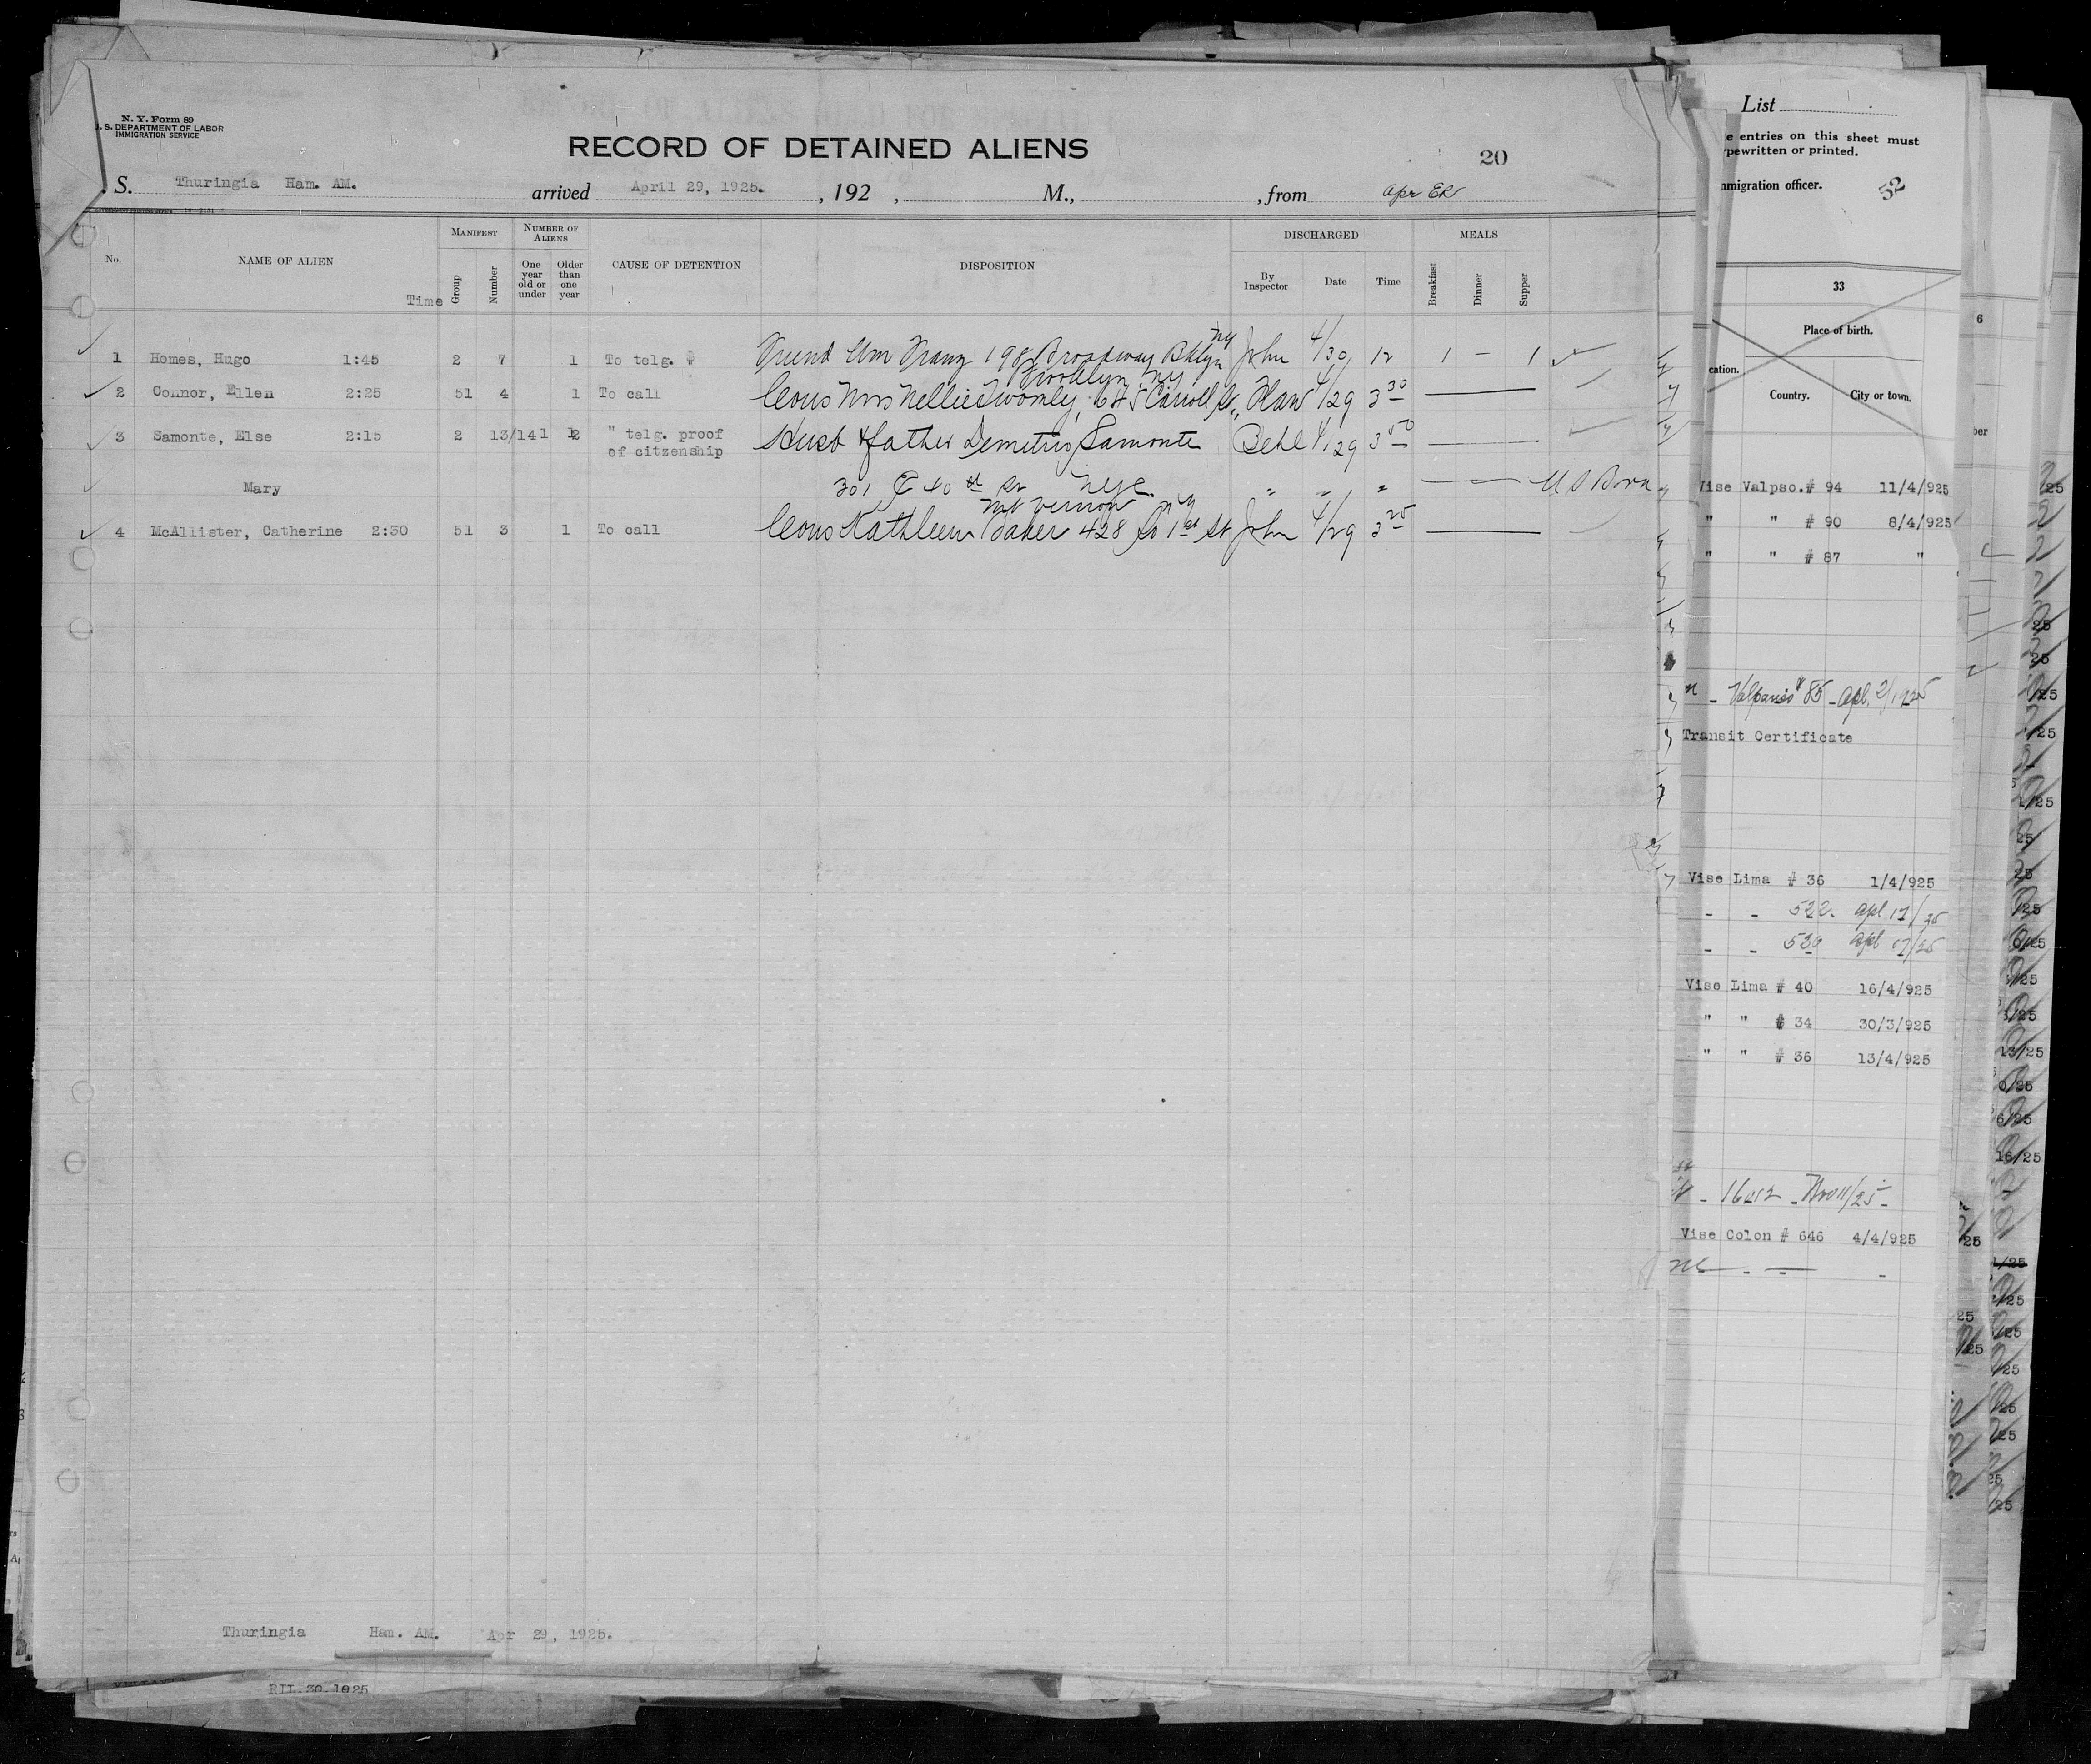 N. Y. Form 89
. S. DEPARTMENT OF LABOR
IMMIGRATION SERVICE
RECORD OF DETAINED ALIENS
20
. S. Thuringia Ham. AM. arrived April 29, 1925. , 192 , M., , from Apr
No. NAME OF ALIEN Time MANIFEST Group Number NUMBER OF ALIENS One year old or under Older than one year CAUSE OF DETENTION DISPOSITION DISCHARGED By Inspector Date Time MEALS Breakfast Dinner Supper
NY
1 Homes, Hugo 1:45 2 7 1 To telg. Friend Wm Franz 198 Broadway Bklyn John 4/30 12 1 — 1
Brooklyn NY
2 Connor, Ellen 2:25 51 4 1 To call Cous Mrs Nellie Twomly, 675 Carroll St., Haw 4/29 3 30
3 Samonte, Else 2:15 2 13/14 1 2 " telg. proof Husb & father Demetrio Samonte 4/29 3 50
of citzenship
Mary 301 E 40 th St NYC. " " " U S Born
Mt Vernon NY
4 McAllister, Catherine 2:30 51 3 1 To call Cous Kathleen Baker 428 So 1st St John 4/29 3 25
Thuringia Ham. AM. Apr 29, 1925.
RIL 30 1925
List
e entries on this sheet must
pewritten or printed.
mmigration officer.
52
33
Place of birth.
cation.
Country. City or town.
Vise Valpso.# 94 11/4/925
" " # 90 8/4/925
" " # 87 "
Valparaiso # 85 - Apl. 2/1925
Transit Certificate
Vise Lima # 36 1/4/925
- - 522. Apl 17/25
- - 530 Apl 17/25
Vise Lima # 40 16/4/925
" " # 34 30/3/925
" " # 36 13/4/925
Vise Colon # 646 4/4/925